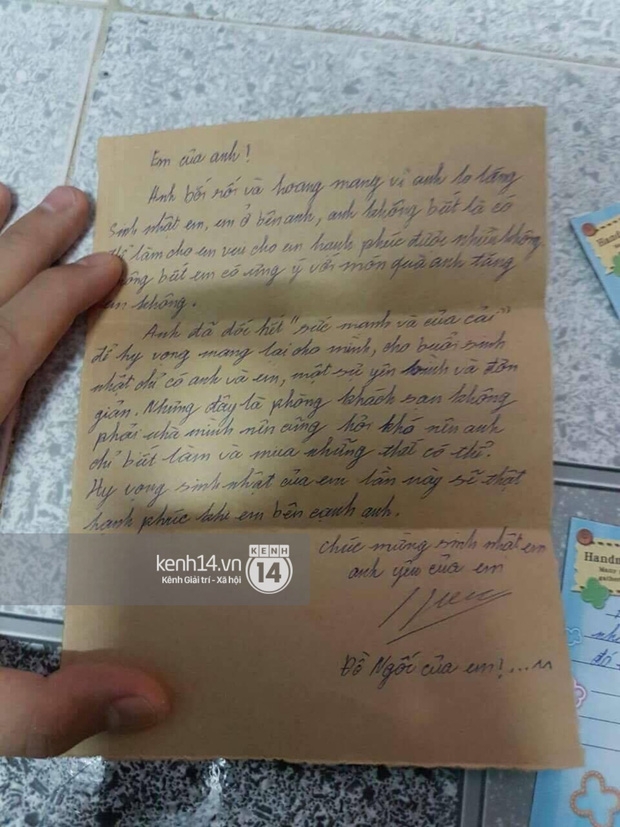 Em của anh!
Anh bối rối và hoang mang vì anh lo lắng
sinh nhật em, em ở bên anh, anh không biết là có
làm cho em vui cho em hạnh phúc được nhiều không
không biết em có ưng ý với món quà anh tặng
em không.
Anh đã dốc hết "sức mạnh và của cải"
để hy vọng mang lại cho mình, cho buổi sinh
nhật chỉ có anh và em, một sự yên bình và đơn
giản. Nhưng đây là phòng khách sạn không
phải nhà mình nên cũng hơi khó nên anh
chỉ biết làm và mua những thứ có thể.
Hy vọng sinh nhật của em lần này sẽ thật
hạnh phúc khi em bên cạnh anh.
Chúc mừng sinh nhật em
anh yêu của em
Đồ Ngốc của em!...
kenh14.vn
Kênh Giải trí - Xã hội
KENH
14
Handm
Many
Handm
Many
gather